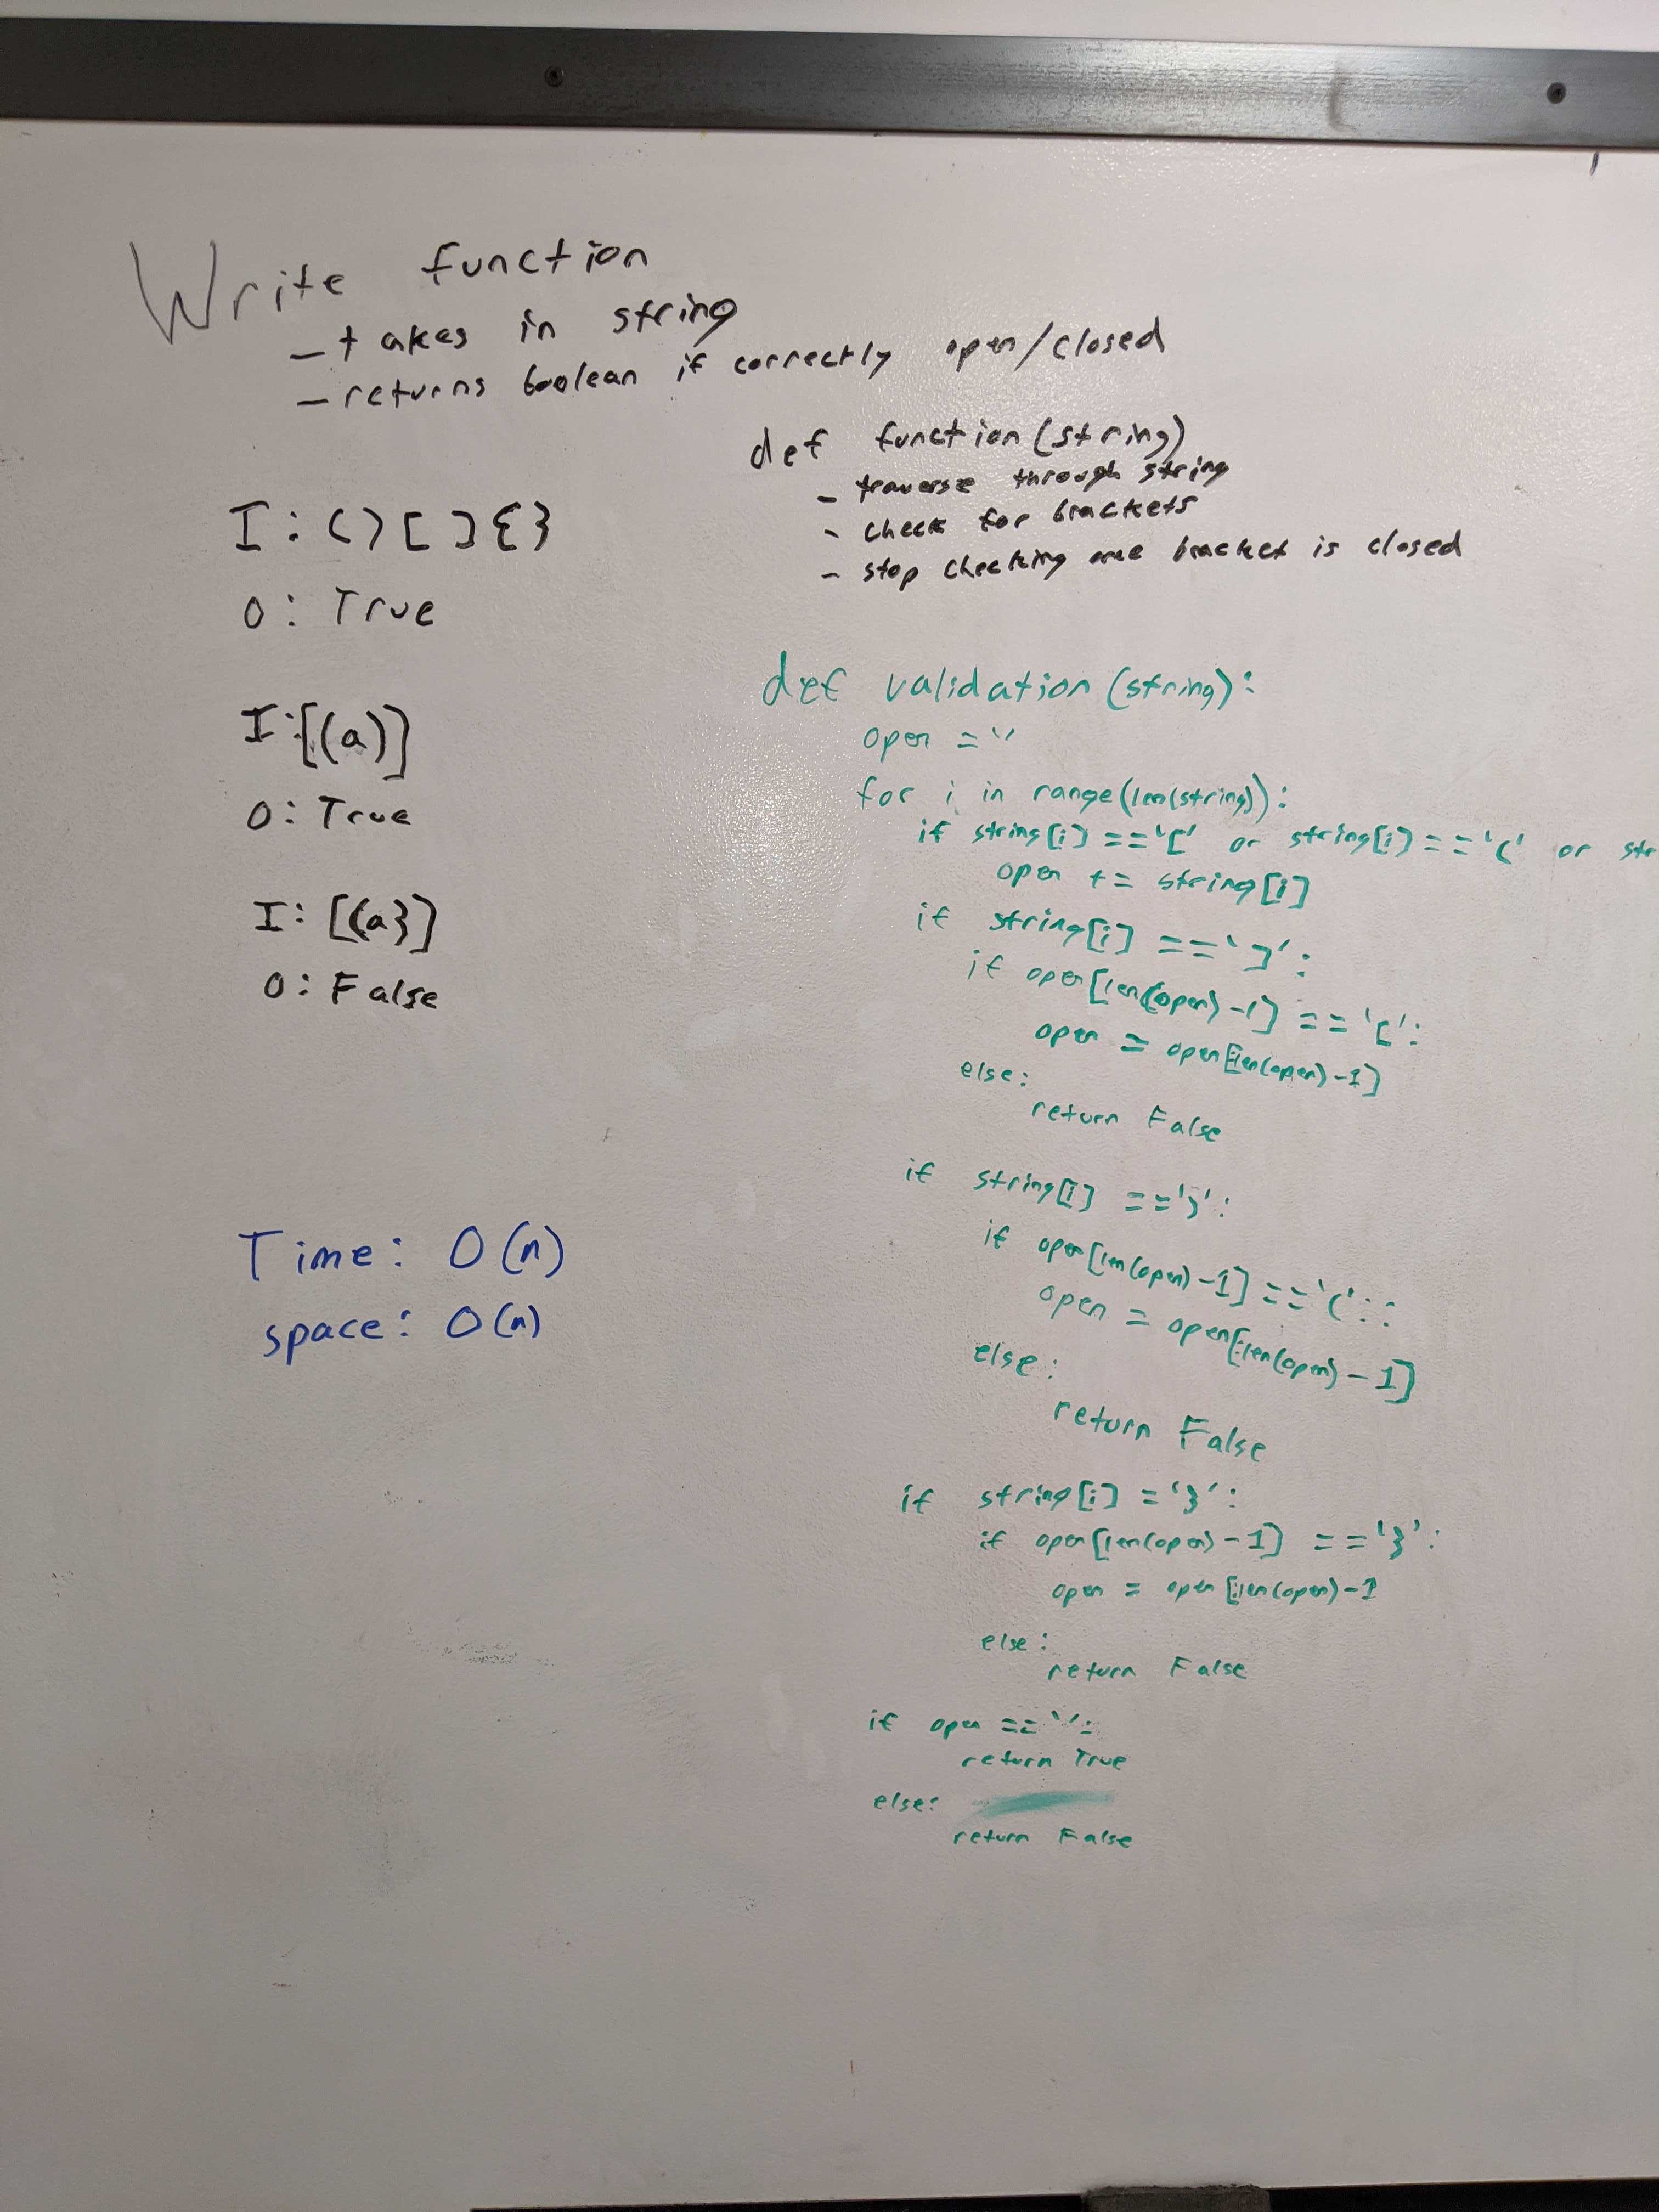 Write function
- takes in string
- returns boolean if correctly open/closed
I: ()[]{}
O: True
I: [(a)]
O: True
I: [(a}]
O: False
Time: O(n)
space: O(n)
def function(string)
- traverse through string
- check for brackets
- stop checking once bracket is closed
def validation(string):
open = ''
for i in range(len(string)):
if string[i] == '[' or string[i] == '(' or str
open += string[i]
if string[i] == ']':
if open[len(open)-1] == '[':
open = open[:len(open)-1]
else:
return False
if string[i] == ')':
if open[len(open)-1] == '(' ::
open = open[:len(open)-1]
else:
return False
if string[i] = '}':
if open[len(open)-1] == '}':
open = open[:len(open)-1
else:
return False
if open == '':
return True
else:
return False